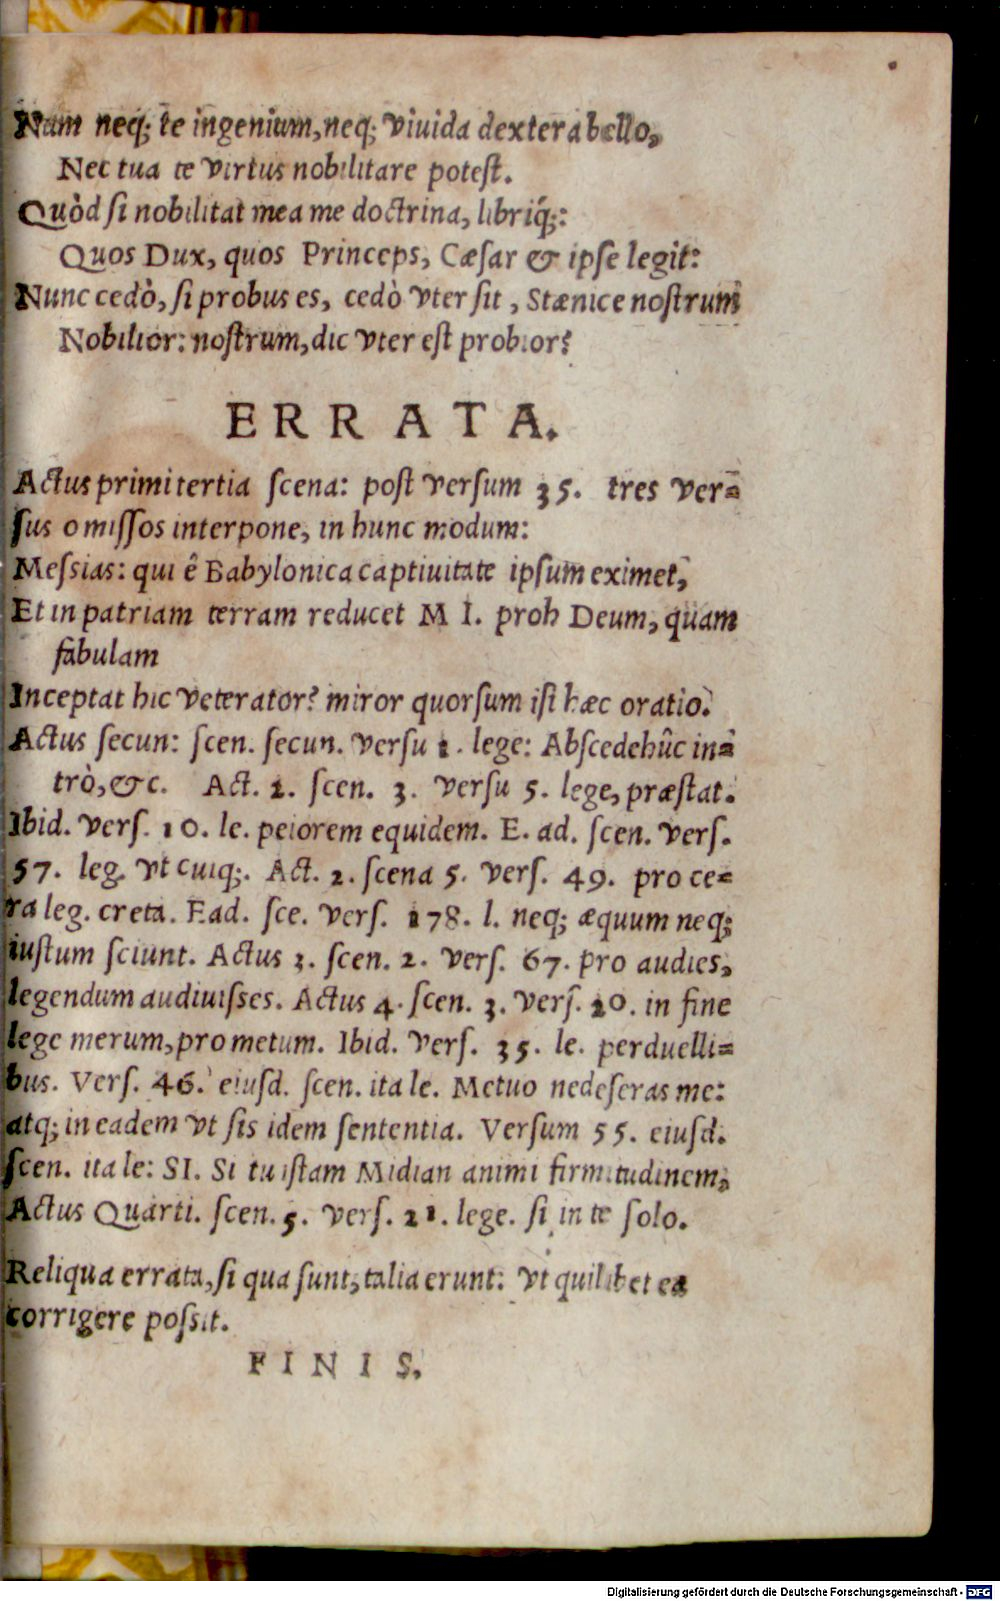 Nam neq; te ingenium, neq; viuida dextera bello,
Nec tua te virtus nobilitare potest.
Quòd si nobilitat mea me doctrina, libriq́;:
Quos Dux, quos Princeps, Cæsar & ipse legit:
Nunc cedò, si probus es, cedò vter sit, Stænice nostrum
Nobilior: nostrum, dic vter est probior?
ERRATA.
Actus primi tertia scena: post versum 35. tres ver=
sus omissos interpone, in hunc modum:
Messias: qui ê Babylonica captiuitate ipsum eximet,
Et in patriam terram reducet MI. proh Deum, quam
fabulam
Inceptat hic veterator? miror quorsum isthæc oratio.
Actus secun: scen. secun. versu 1. lege: Abscede hûc in=
trò, &c. Act. 2. scen. 3. versu 5. lege, præstat.
Ibid. vers. 10. le. peiorem equidem. E. ad. scen. vers.
57. leg. vt cuiq;. Act. 2. scena 5. vers. 49. pro ce=
ra leg. creta. Ead. sce. vers. 178. l. neq; æquum neq;
iustum sciunt. Actus 3. scen. 2. vers. 67. pro audies,
legendum audiuisses. Actus 4. scen. 3. vers. 20. in fine
lege merum, pro metum. Ibid. vers. 35. le. perduelli=
bus. Vers. 46. eiusd. scen. ita le. Metuo ne deseras me:
atq; in eadem vt sis idem sententia. Versum 55. eiusd.
scen. ita le: SI. Si tu istam Midian animi firmitudinem,
Actus Quarti. scen. 5. vers. 21. lege. si in te solo.
Reliqua errata, si qua sunt, talia erunt: vt quilibet ea
corrigere possit.
FINIS.
Digitalisierung gefördert durch die Deutsche Forschungsgemeinschaft - DFG